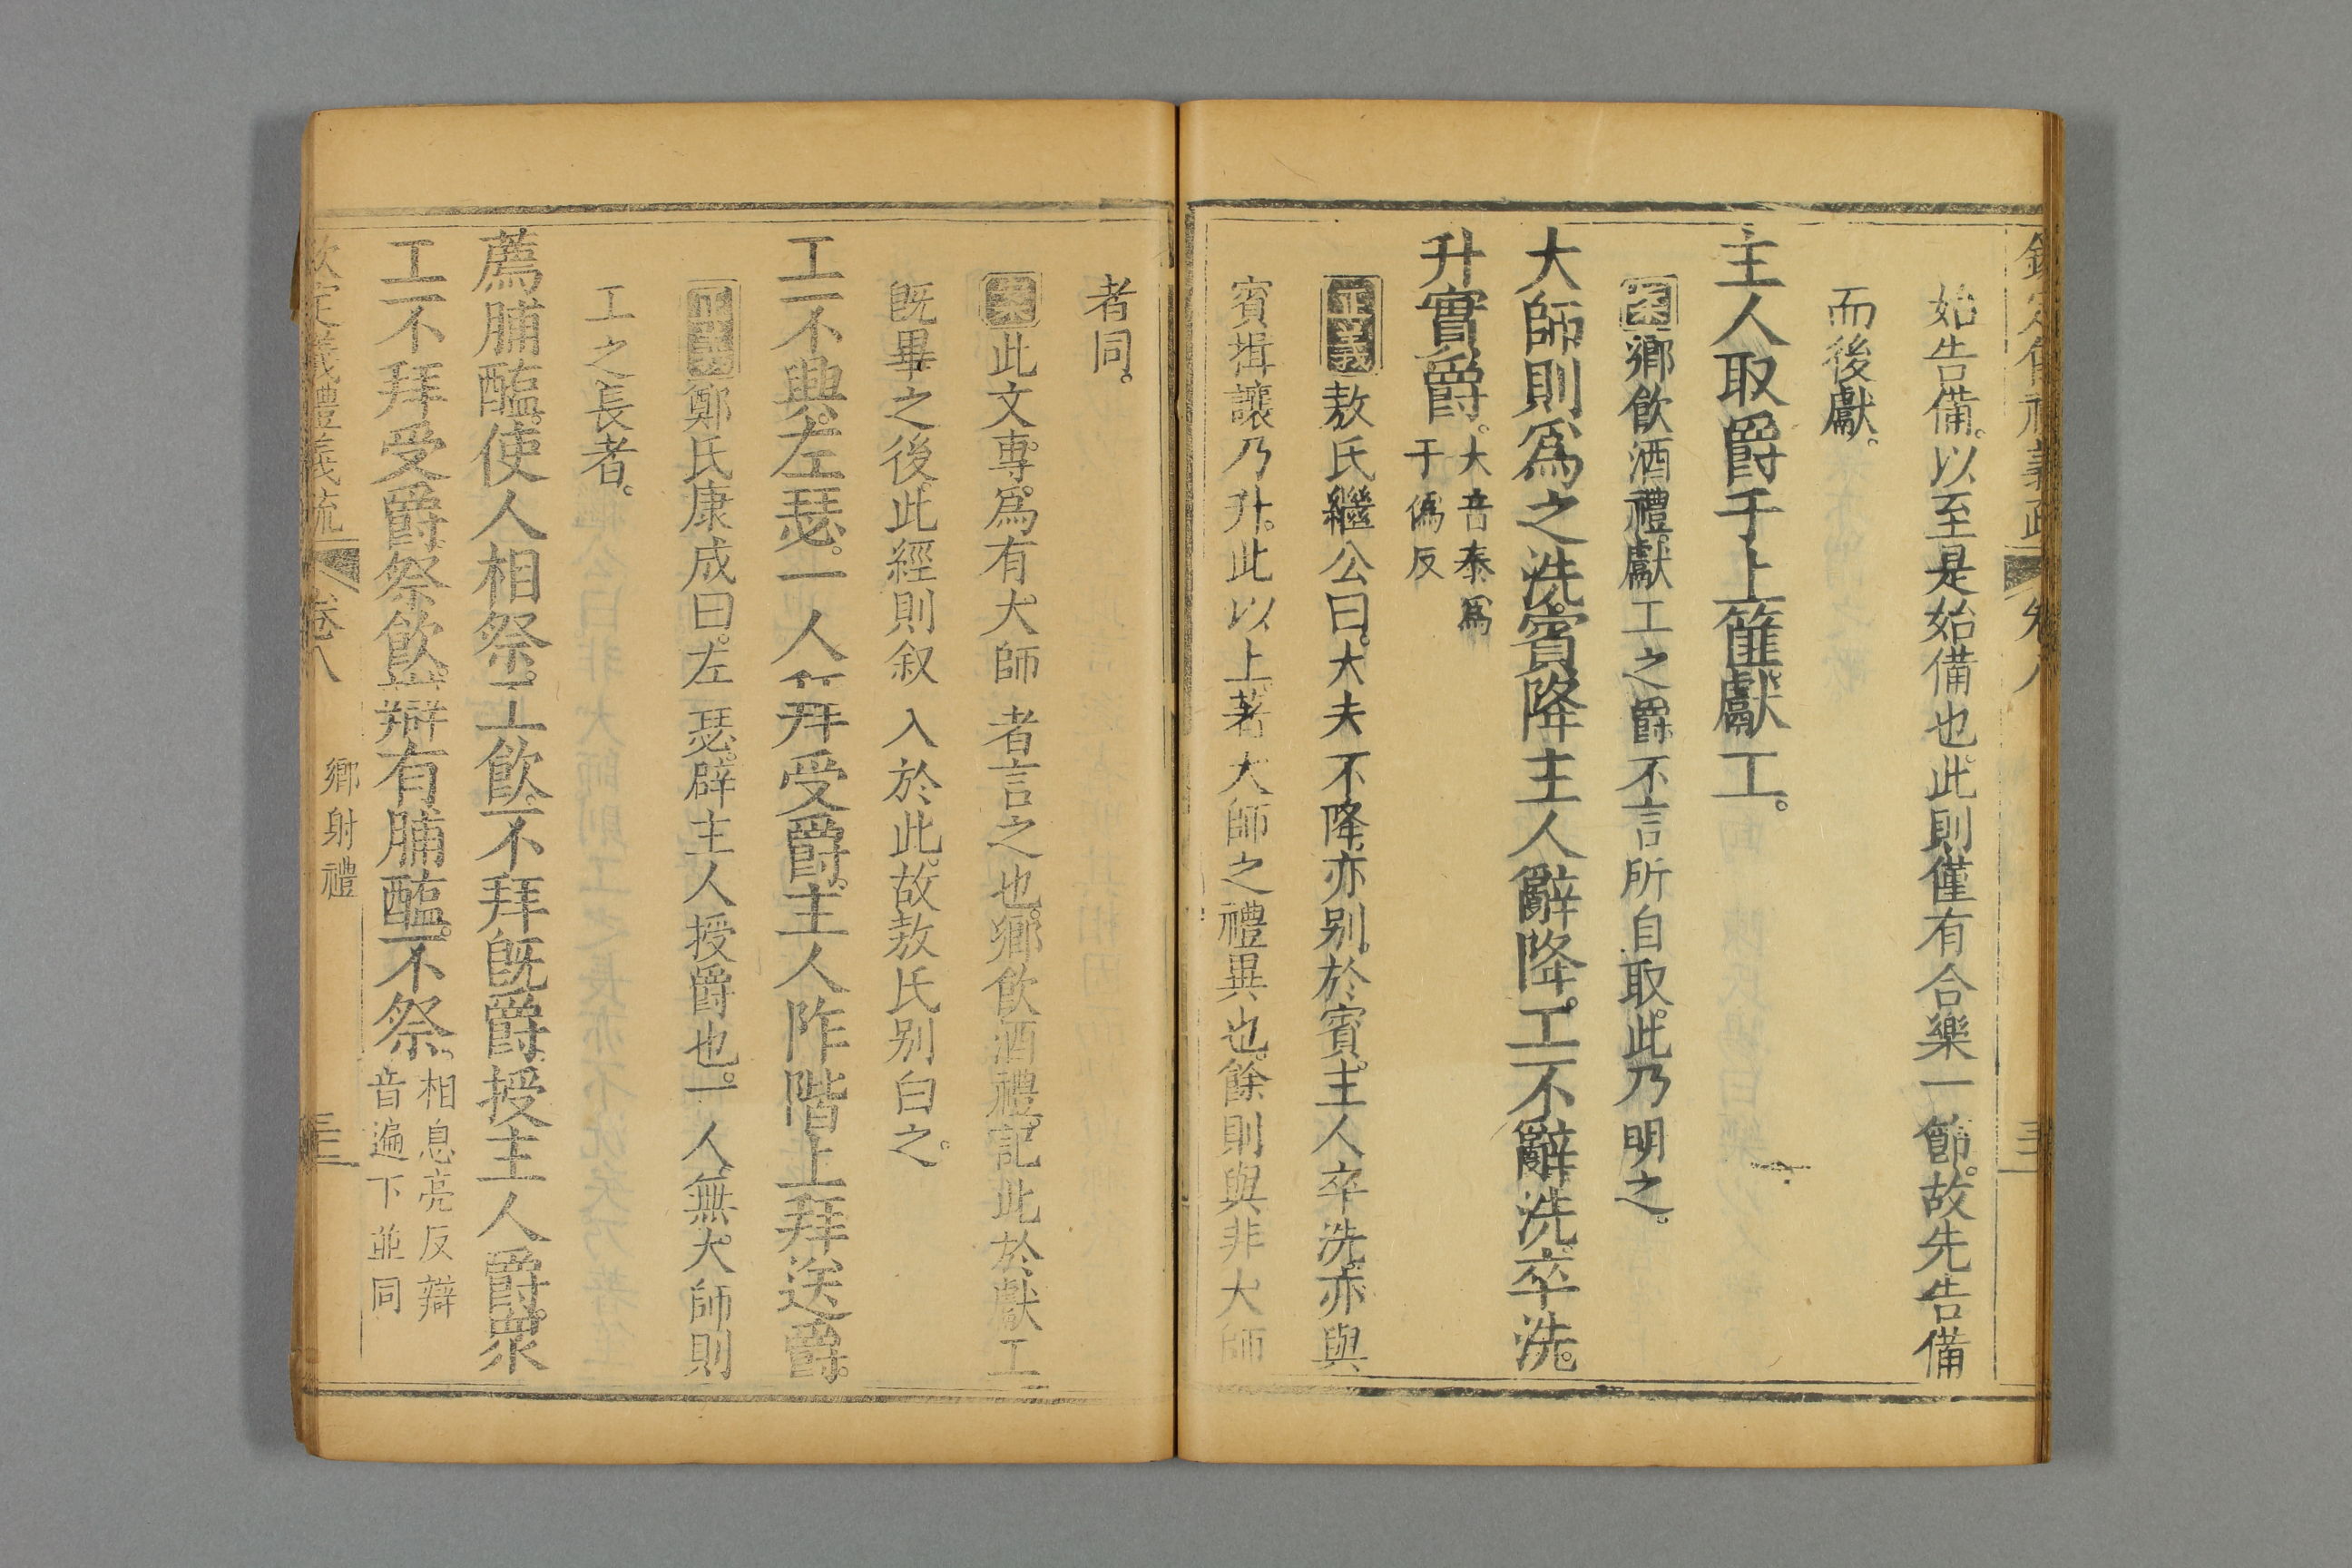 欽定儀禮義疏 卷八 三
始告備。以至是始備也。此則僅有合樂一節。故先告備
而後獻。
主人取爵于上篚。獻工。
案鄉飲酒禮。獻工之爵不言所自取。此乃明之。
大師則爲之洗。賓降。主人辭降。工不辭洗。卒洗。
升實爵。大音泰爲
于僞反
正義敖氏繼公曰。大夫不降。亦别於賓。主人卒洗。亦與
賓揖讓乃升。此以上著大師之禮異也。餘則與非大師
者同。
案此文專爲有大師者言之也。鄉飲酒禮。記此於獻工
旣畢之後。此經則叙入於此。故敖氏别白之。
工不興。左瑟。一人拜受爵。主人阼階上拜送爵。
正義鄭氏康成曰。左瑟。辟主人授爵也。一人。無大師則
工之長者。
薦脯醢。使人相祭。工飲。不拜旣爵。授主人爵。衆
工不拜受爵。祭飲。辯有脯醢。不祭。相息亮反辯
音遍下並同
欽定儀禮義疏 卷八 鄉射禮